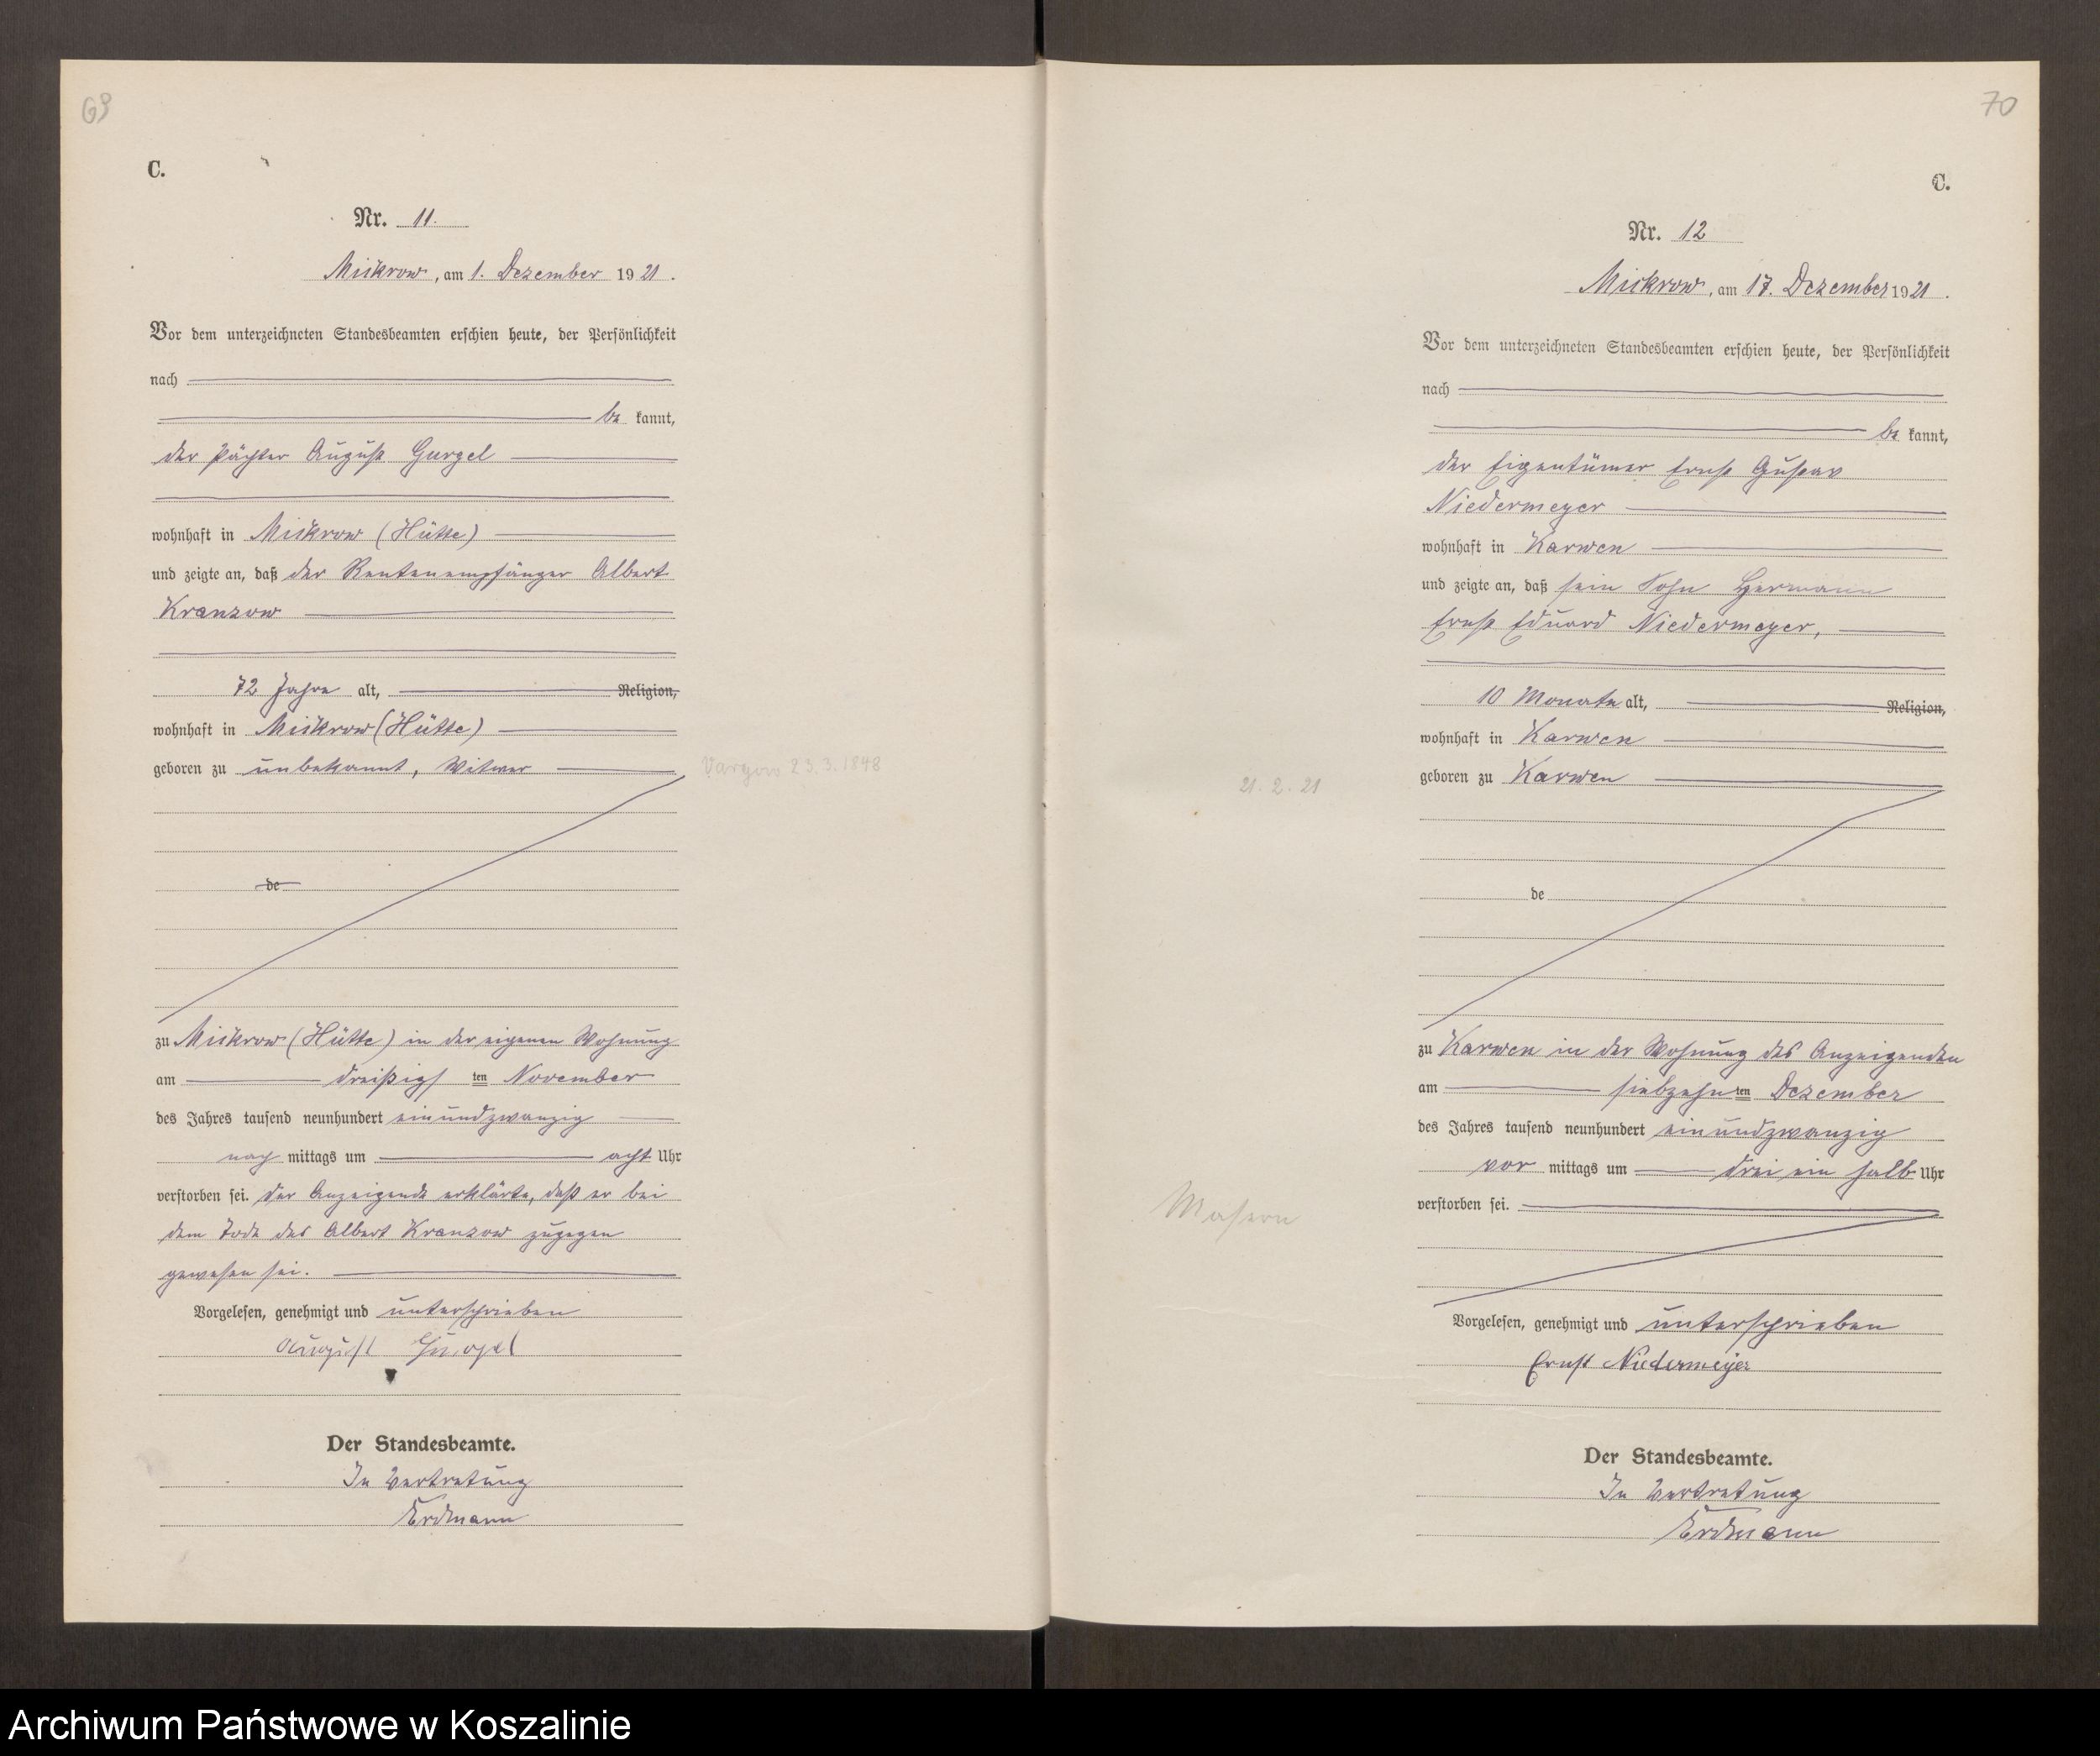 69
C.
Nr. 11.
Mickrow, am 1. Dezember 1921.
Vor dem unterzeichneten Standesbeamten erschien heute, der Persönlichkeit
nach
be kannt,
der Pächter August Gurgel
wohnhaft in Mickrow (Hütte)
und zeigte an, daß der Rentenempfänger Albert
Kranzow
72 Jahre alt, Religion,
wohnhaft in Mickrow (Hütte)
geboren zu unbekannt, Witwer
Vargow 23.3.1848
de
zu Mickrow (Hütte) in der eigenen Wohnung
am dreißigsten November
des Jahres tausend neunhundert einundzwanzig
nach mittags um acht Uhr
verstorben sei. Der Anzeigende erklärte, daß er bei
dem Tode des Albert Kranzow zugegen
gewesen sei.
Vorgelesen, genehmigt und unterschrieben
August Gurgel
Der Standesbeamte.
In Vertretung
Erdmann
70
C.
Nr. 12
Mickrow, am 17. Dezember 1921.
Vor dem unterzeichneten Standesbeamten erschien heute, der Persönlichkeit
nach
be kannt,
der Eigentümer Ernst Gustav
Niedermeyer
wohnhaft in Karwen
und zeigte an, daß sein Sohn Hermann
Ernst Eduard Niedermeyer,
10 Monate alt, Religion,
wohnhaft in Karwen
geboren zu Karwen
21.2.21
de
zu Karwen in der Wohnung des Anzeigenden
am siebzehnten Dezember
des Jahres tausend neunhundert einundzwanzig
vor mittags um drei ein halb Uhr
verstorben sei.
Masern
Vorgelesen, genehmigt und unterschrieben
Ernst Niedermeyer
Der Standesbeamte.
In Vertretung
Erdmann
Archiwum Państwowe w Koszalinie